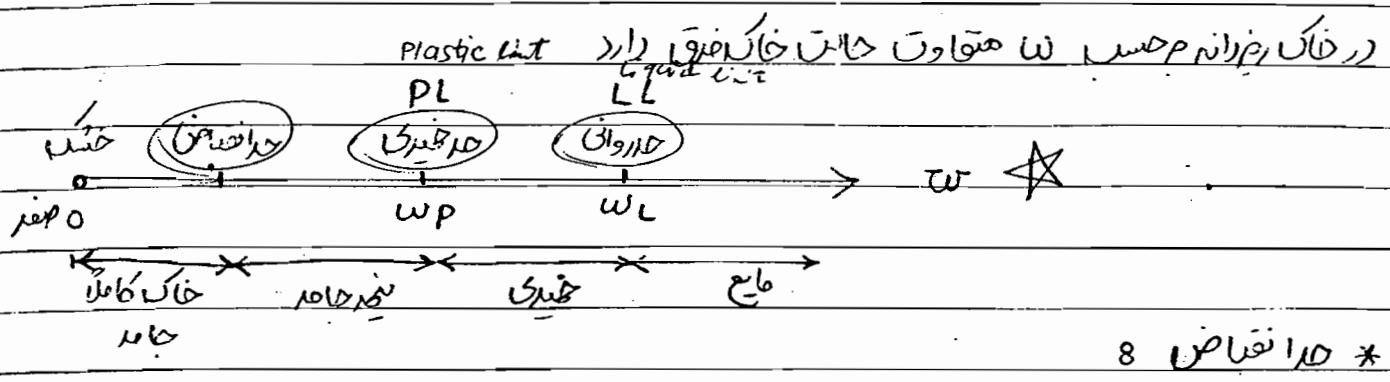 در خاک ریزدانه برحسب ω متفاوت حالت خاک فرق دارد Plastic limit
Liquid limit
PL LL
خشک حد انقباض حد خمیری حد روانی
ω
صفر 0 ωP ωL
خاک کاملاً جامد نیمه جامد خمیری مایع
* حد انقباض 8